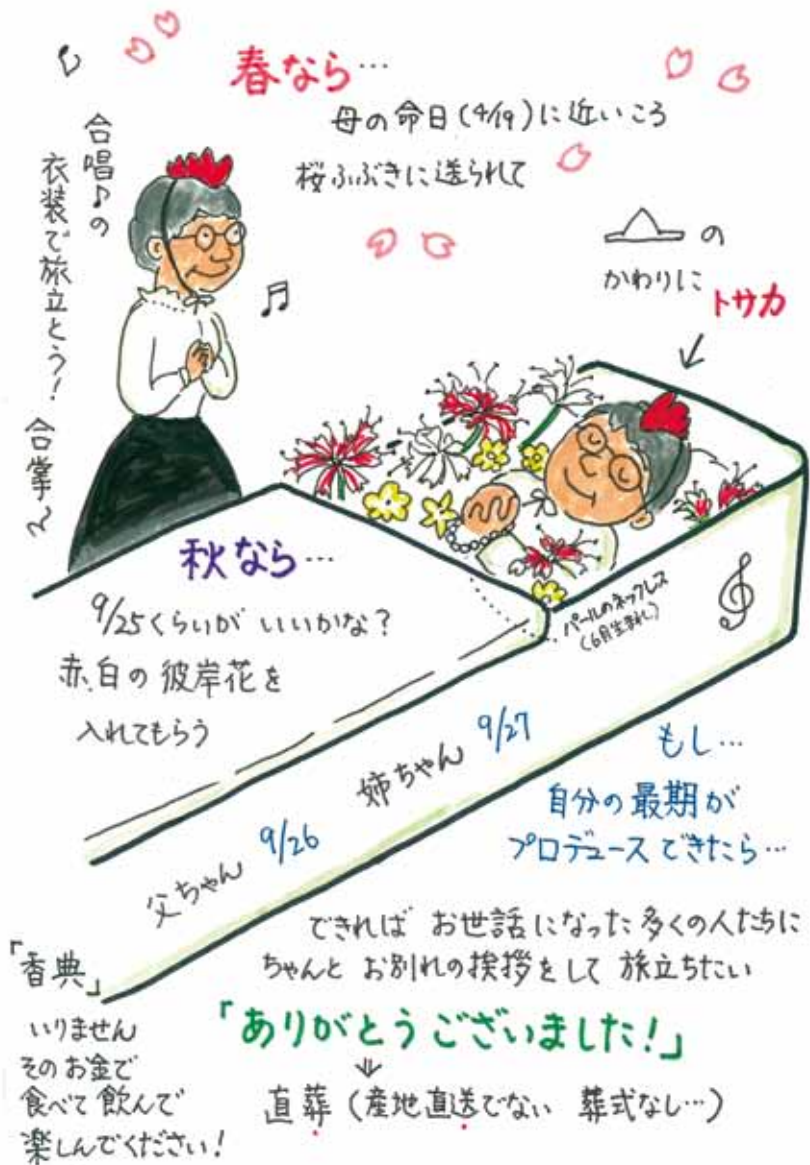 春なら…
母の命日(4/19)に近いころ
桜ふぶきに送られて
合唱♪の
衣装で旅立とう!
合掌〜
の
かわりに
トサカ
秋なら…
9/25くらいが いいかな?
赤、白の 彼岸花を
入れてもらう
パールのネックレス
(6月生まれ)
姉ちゃん 9/27
父ちゃん 9/26
もし…
自分の最期が
プロデュースできたら…
できれば お世話になった多くの人たちに
ちゃんと お別れの挨拶をして 旅立ちたい
「ありがとうございました!」
⇓
直葬(産地直送でない 葬式なし…)
「香典」
いりません
そのお金で
食べて 飲んで
楽しんでください!